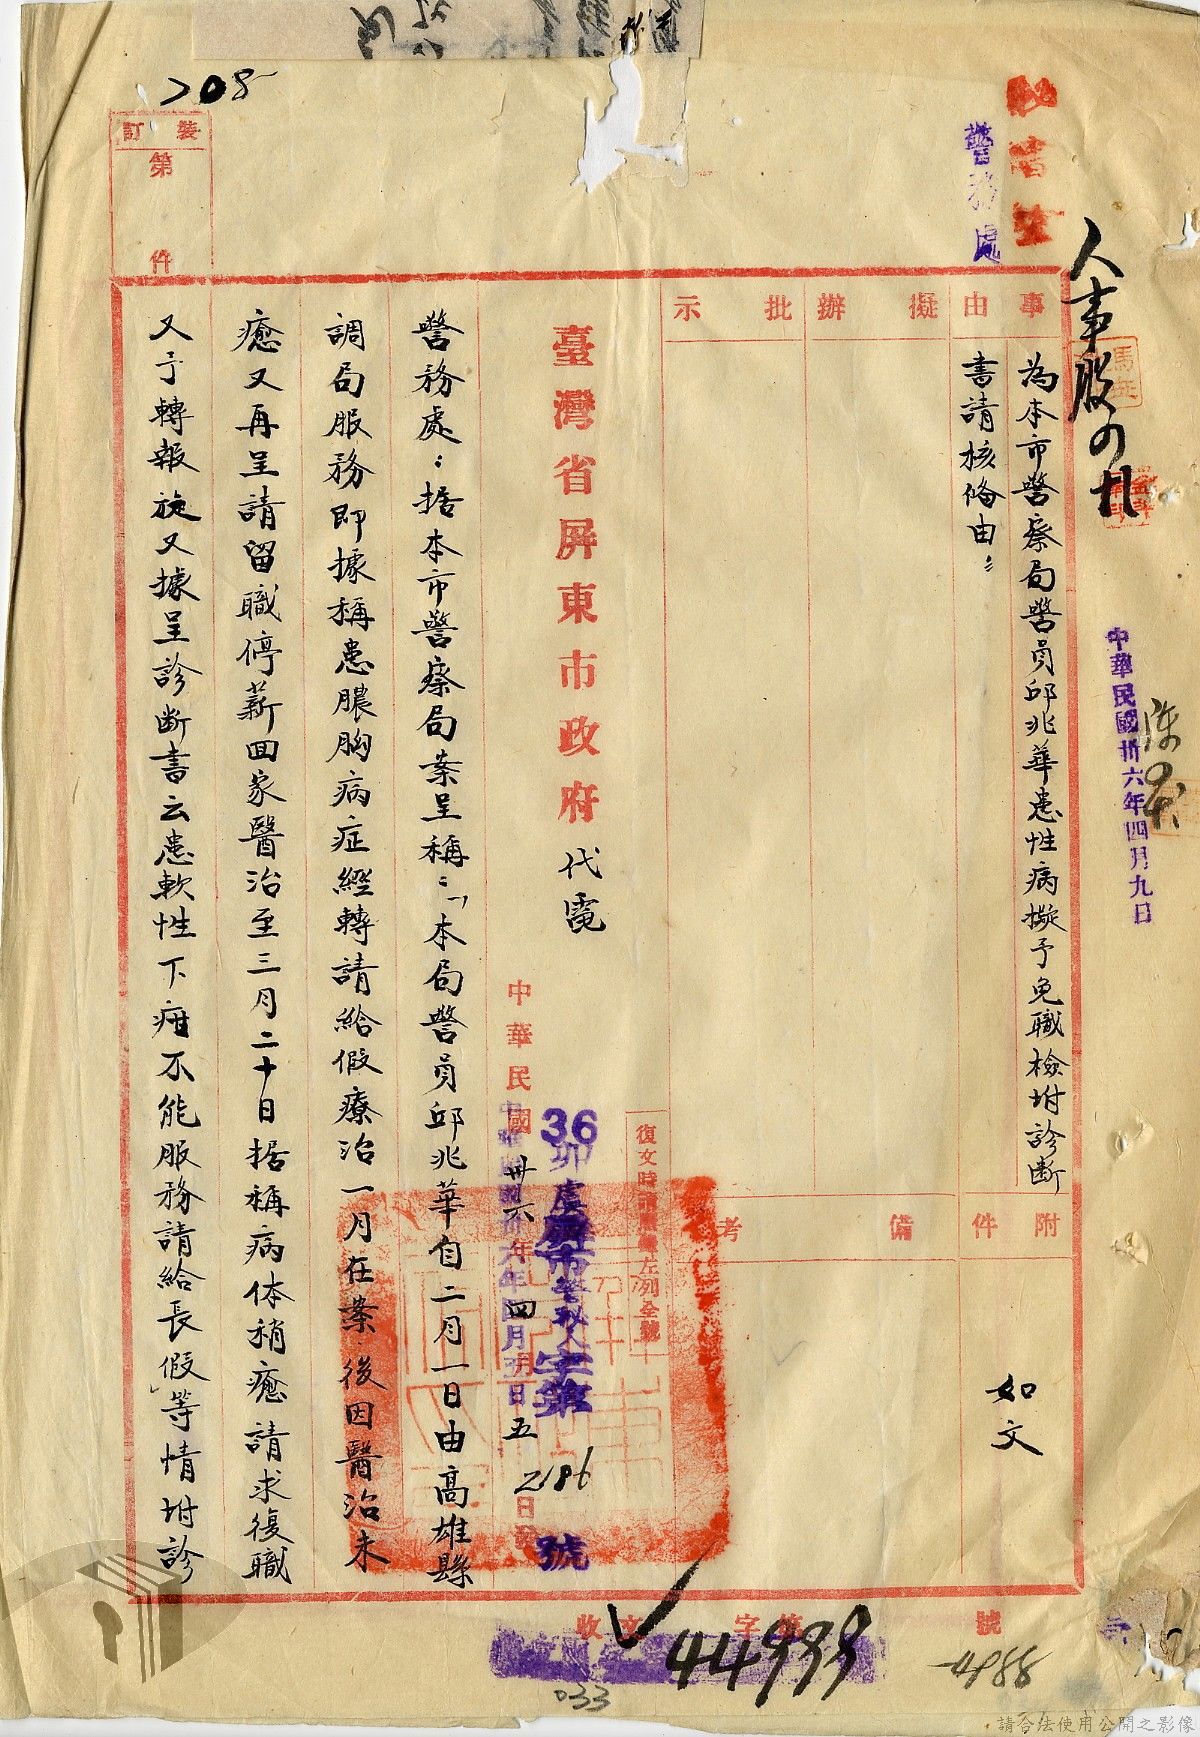 208
裝訂
第 件
警務處
人事股
中華民國卅六年四月九日
事由
為本市警察局警員邱兆華患性病擬予免職檢坿診斷
書請核俻由
擬辦
批示
附件
如文
備考
臺灣省屏東市政府代電
復文時請
左列全號
中華民國卅六年四月五日
36
字第
2186
號
警務處：据本市警察局案呈稱：「本局警員邱兆華自二月一日由高雄縣
調局服務即據稱患膿胸病症經轉請給假療治一月在案後因醫治未
癒又再呈請留職停薪回家醫治至三月二十日据稱病体稍癒請求復職
又予轉報旋又據呈診断書云患軟性下疳不能服務請給長假」等情坿診
收文 字第 號
44999
033
請合法使用公開之影像